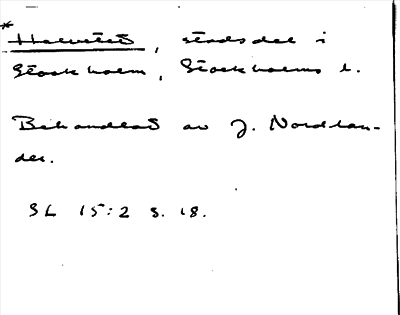 * Helvetet, stadsdel i
Stockholm, Stockholms l.
Behandlad av J. Nordlan-
der.
SL 15:2 s. 18.